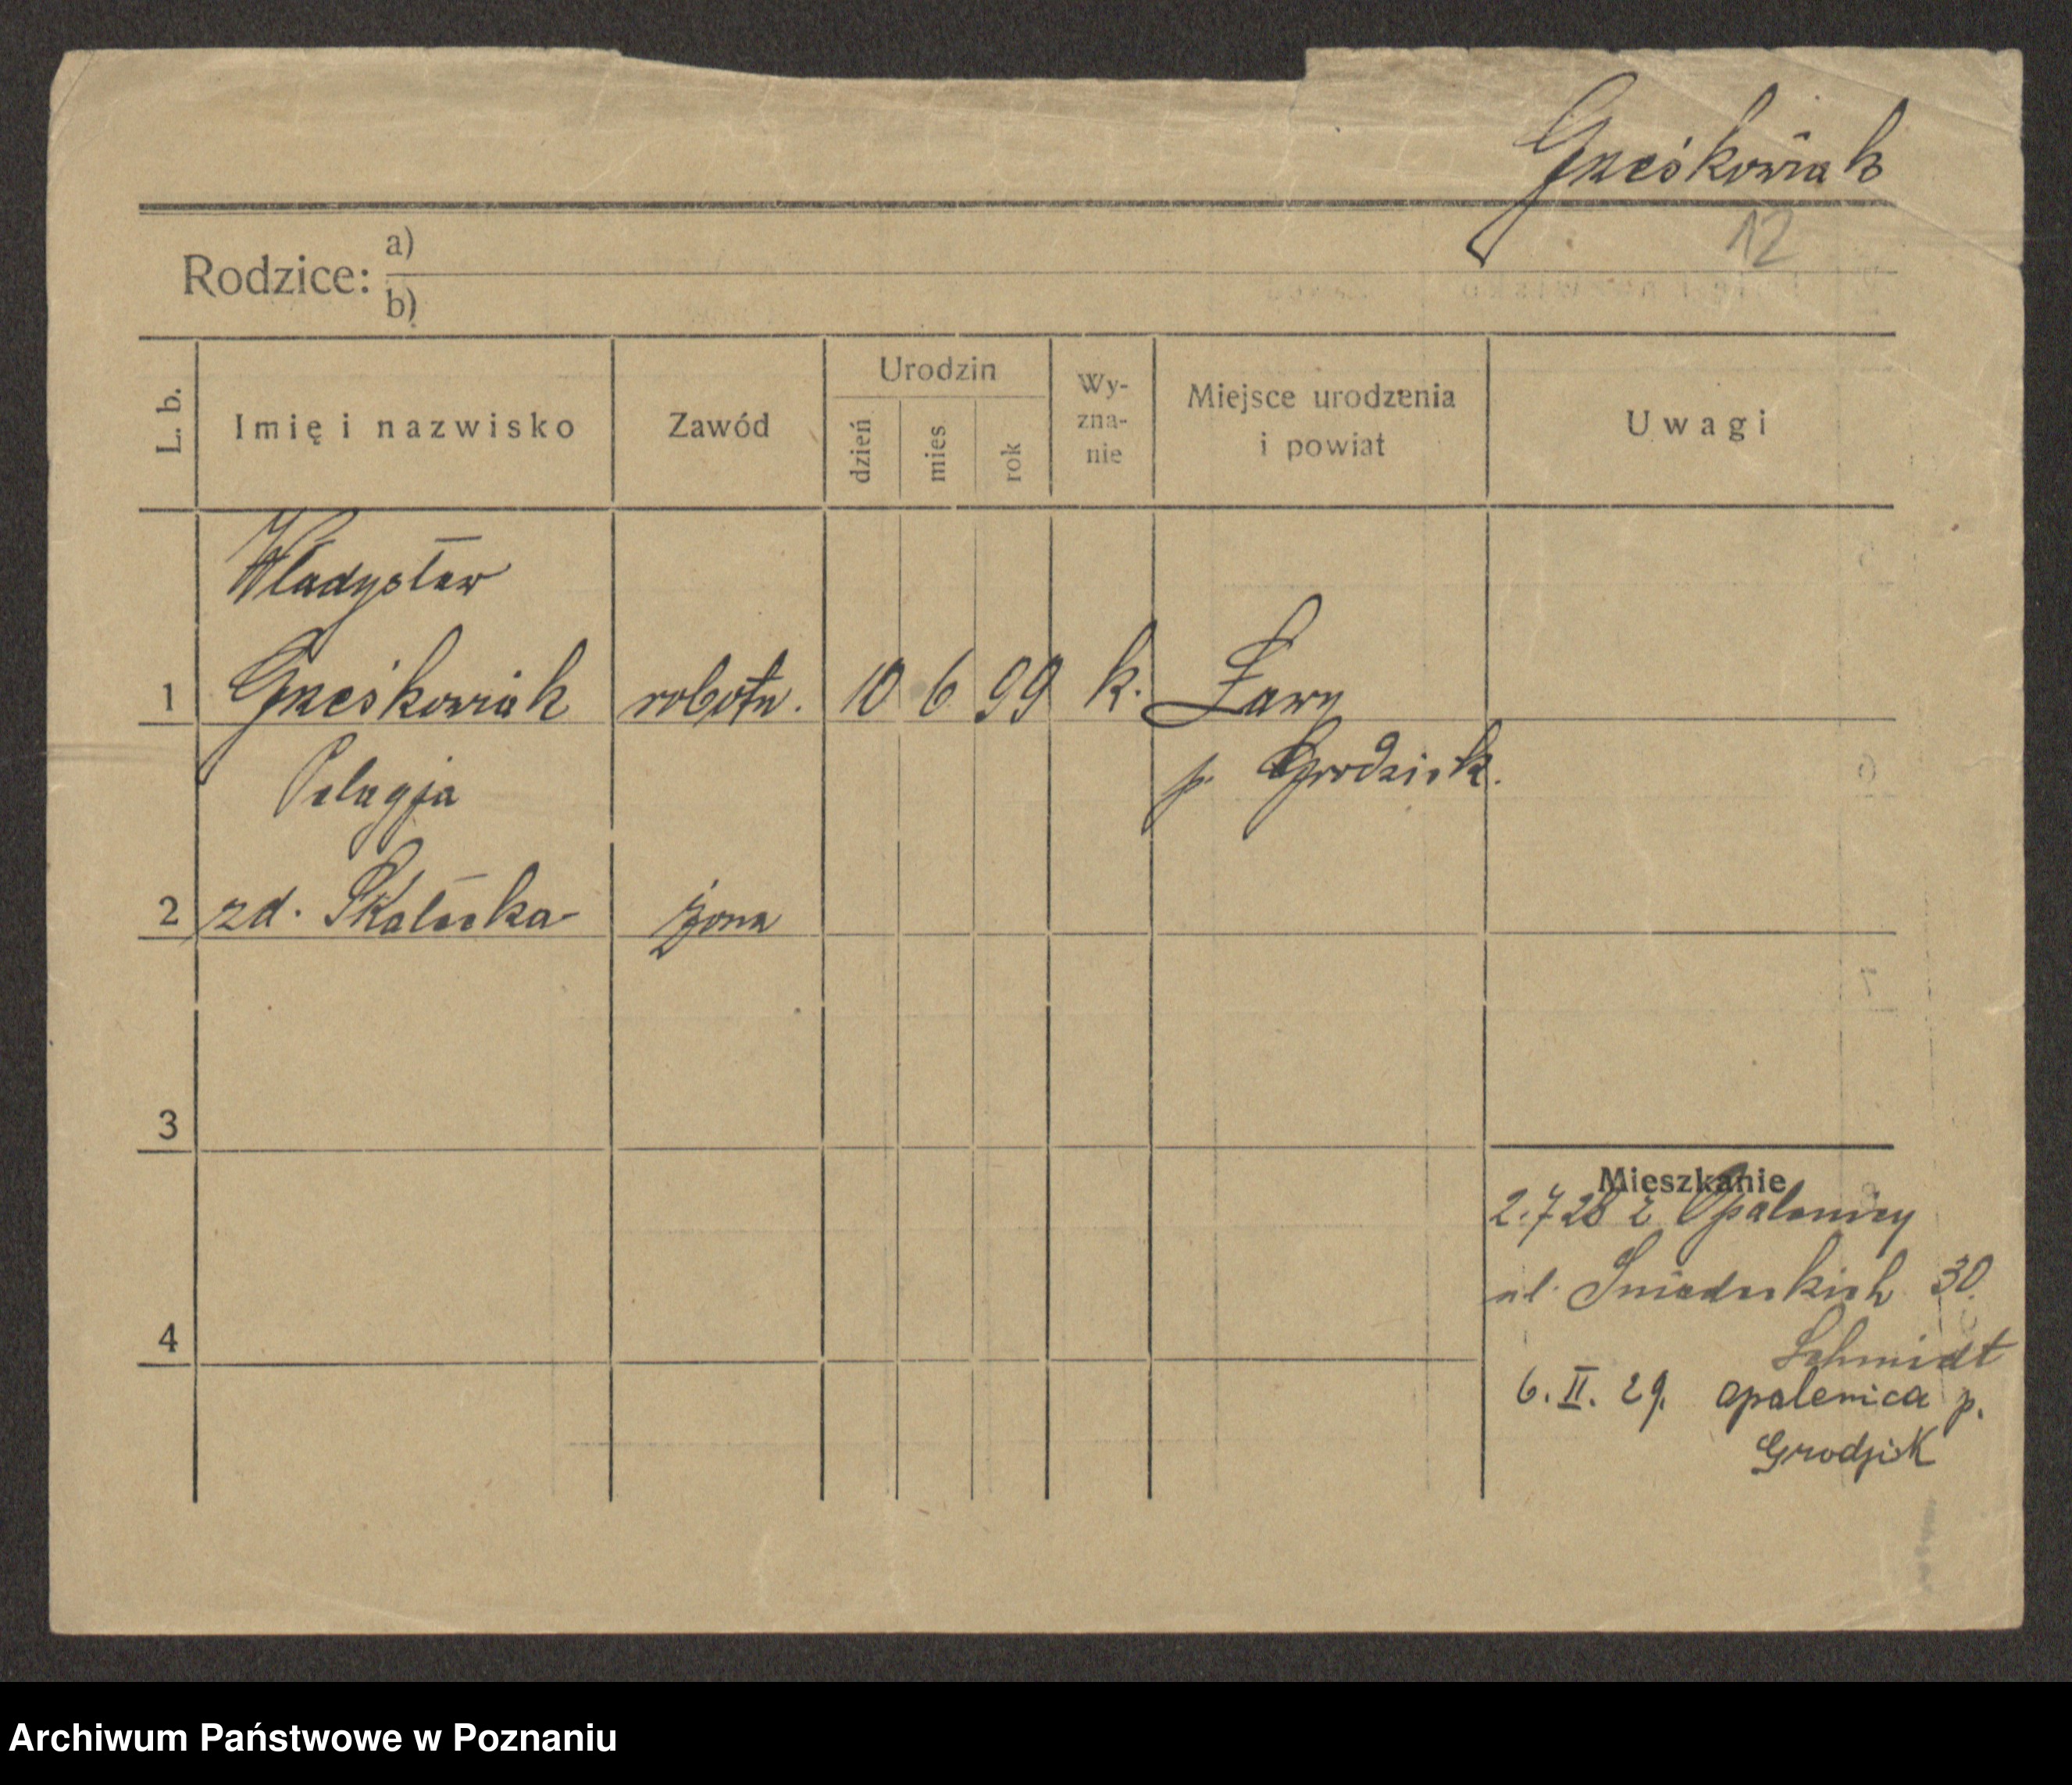 Grześkowiak
12
Rodzice: a)
b)
L. b.
Imię i nazwisko
Zawód
Urodzin
dzień
mies
rok
Wy-
zna-
nie
Miejsce urodzenia
i powiat
Uwagi
Władysław
1 Grześkowiak robotn. 10 6 99 k. Ławy
p. Grodzisk.
Pelagja
2 zd. Skałecka żona
3
4
Mieszkanie
2.7 28 z Opalenicy
ul. Śniadeckich 30.
Schmidt
6. II. 29. Opalenica p.
Grodzisk
Archiwum Państwowe w Poznaniu